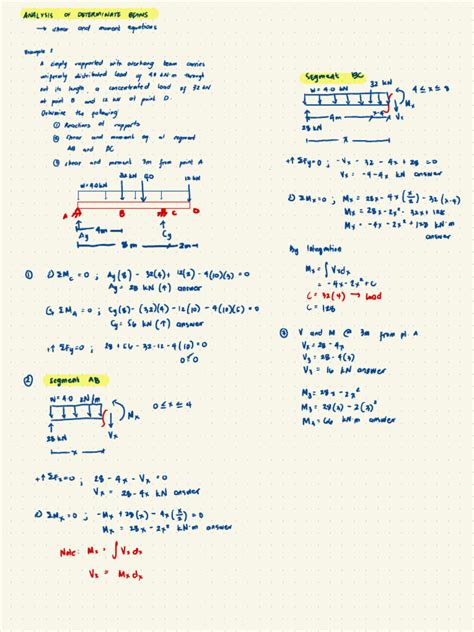 ANALYSIS OF DETERMINATE BEAMS
→ shear and moment equations
Example 1
A simply supported with overhang beam carries
uniformly distributed load of 4.0 kN·m through
out its length, a concentrated load of 32 kN
at point B and 12 kN at point D.
Determine the following
① Reactions at supports
② shear and moment eq. at segment
AB and BC
③ shear and moment 3m from point A
32 kN 40 12 kN
W=4.0kN
A B C D
4m
Ay Cy
8m 2m
① ΣMc = 0 ; Ay(8) - 32(4) + 12(2) - 4(10)(3) = 0
Ay = 28 kN (↑) answer
ΣMA = 0 ; Cy(8) - (32)(4) - 12(10) - 4(10)(5) = 0
Cy = 56 kN (↑) answer
+↑ ΣFy = 0 ; 28 + 56 - 32 - 12 - 4(10) = 0
0 = 0
② Segment AB
W = 4.0 kN/m
0 ≤ x ≤ 4
Mx
28 kN Vx
x
+↑ ΣFx = 0 ; 28 - 4x - Vx = 0
Vx = 28 - 4x kN answer
ΣMx = 0 ; -Mx + 28(x) - 4x(x/2) = 0
Mx = 28x - 2x² kN·m answer
Note: Mx = ∫Vx dx
Vx = Mx dx
Segment BC
W = 4.0 kN 32 kN 4 ≤ x ≤ 8
Mx
4m Vx
28 kN
x
+↑ ΣFy = 0 ; -Vx - 32 - 4x + 28 = 0
Vx = -4 - 4x kN answer
ΣMx = 0 ; Mx = 28x - 4x(x/2) - 32(x-4)
Mx = 28x - 2x² - 32x + 128
Mx = -4x - 2x² + 128 kN·m
answer
By Integration
Mx = ∫Vx dx
= -4x - 2x² + C
C = 32(4) → load
C = 128
③ V and M @ 3m from pt. A
V3 = 28 - 4x
V3 = 28 - 4(3)
V3 = 16 kN answer
M3 = 28x - 2x²
M3 = 28(3) - 2(3)²
M3 = 66 kN·m answer